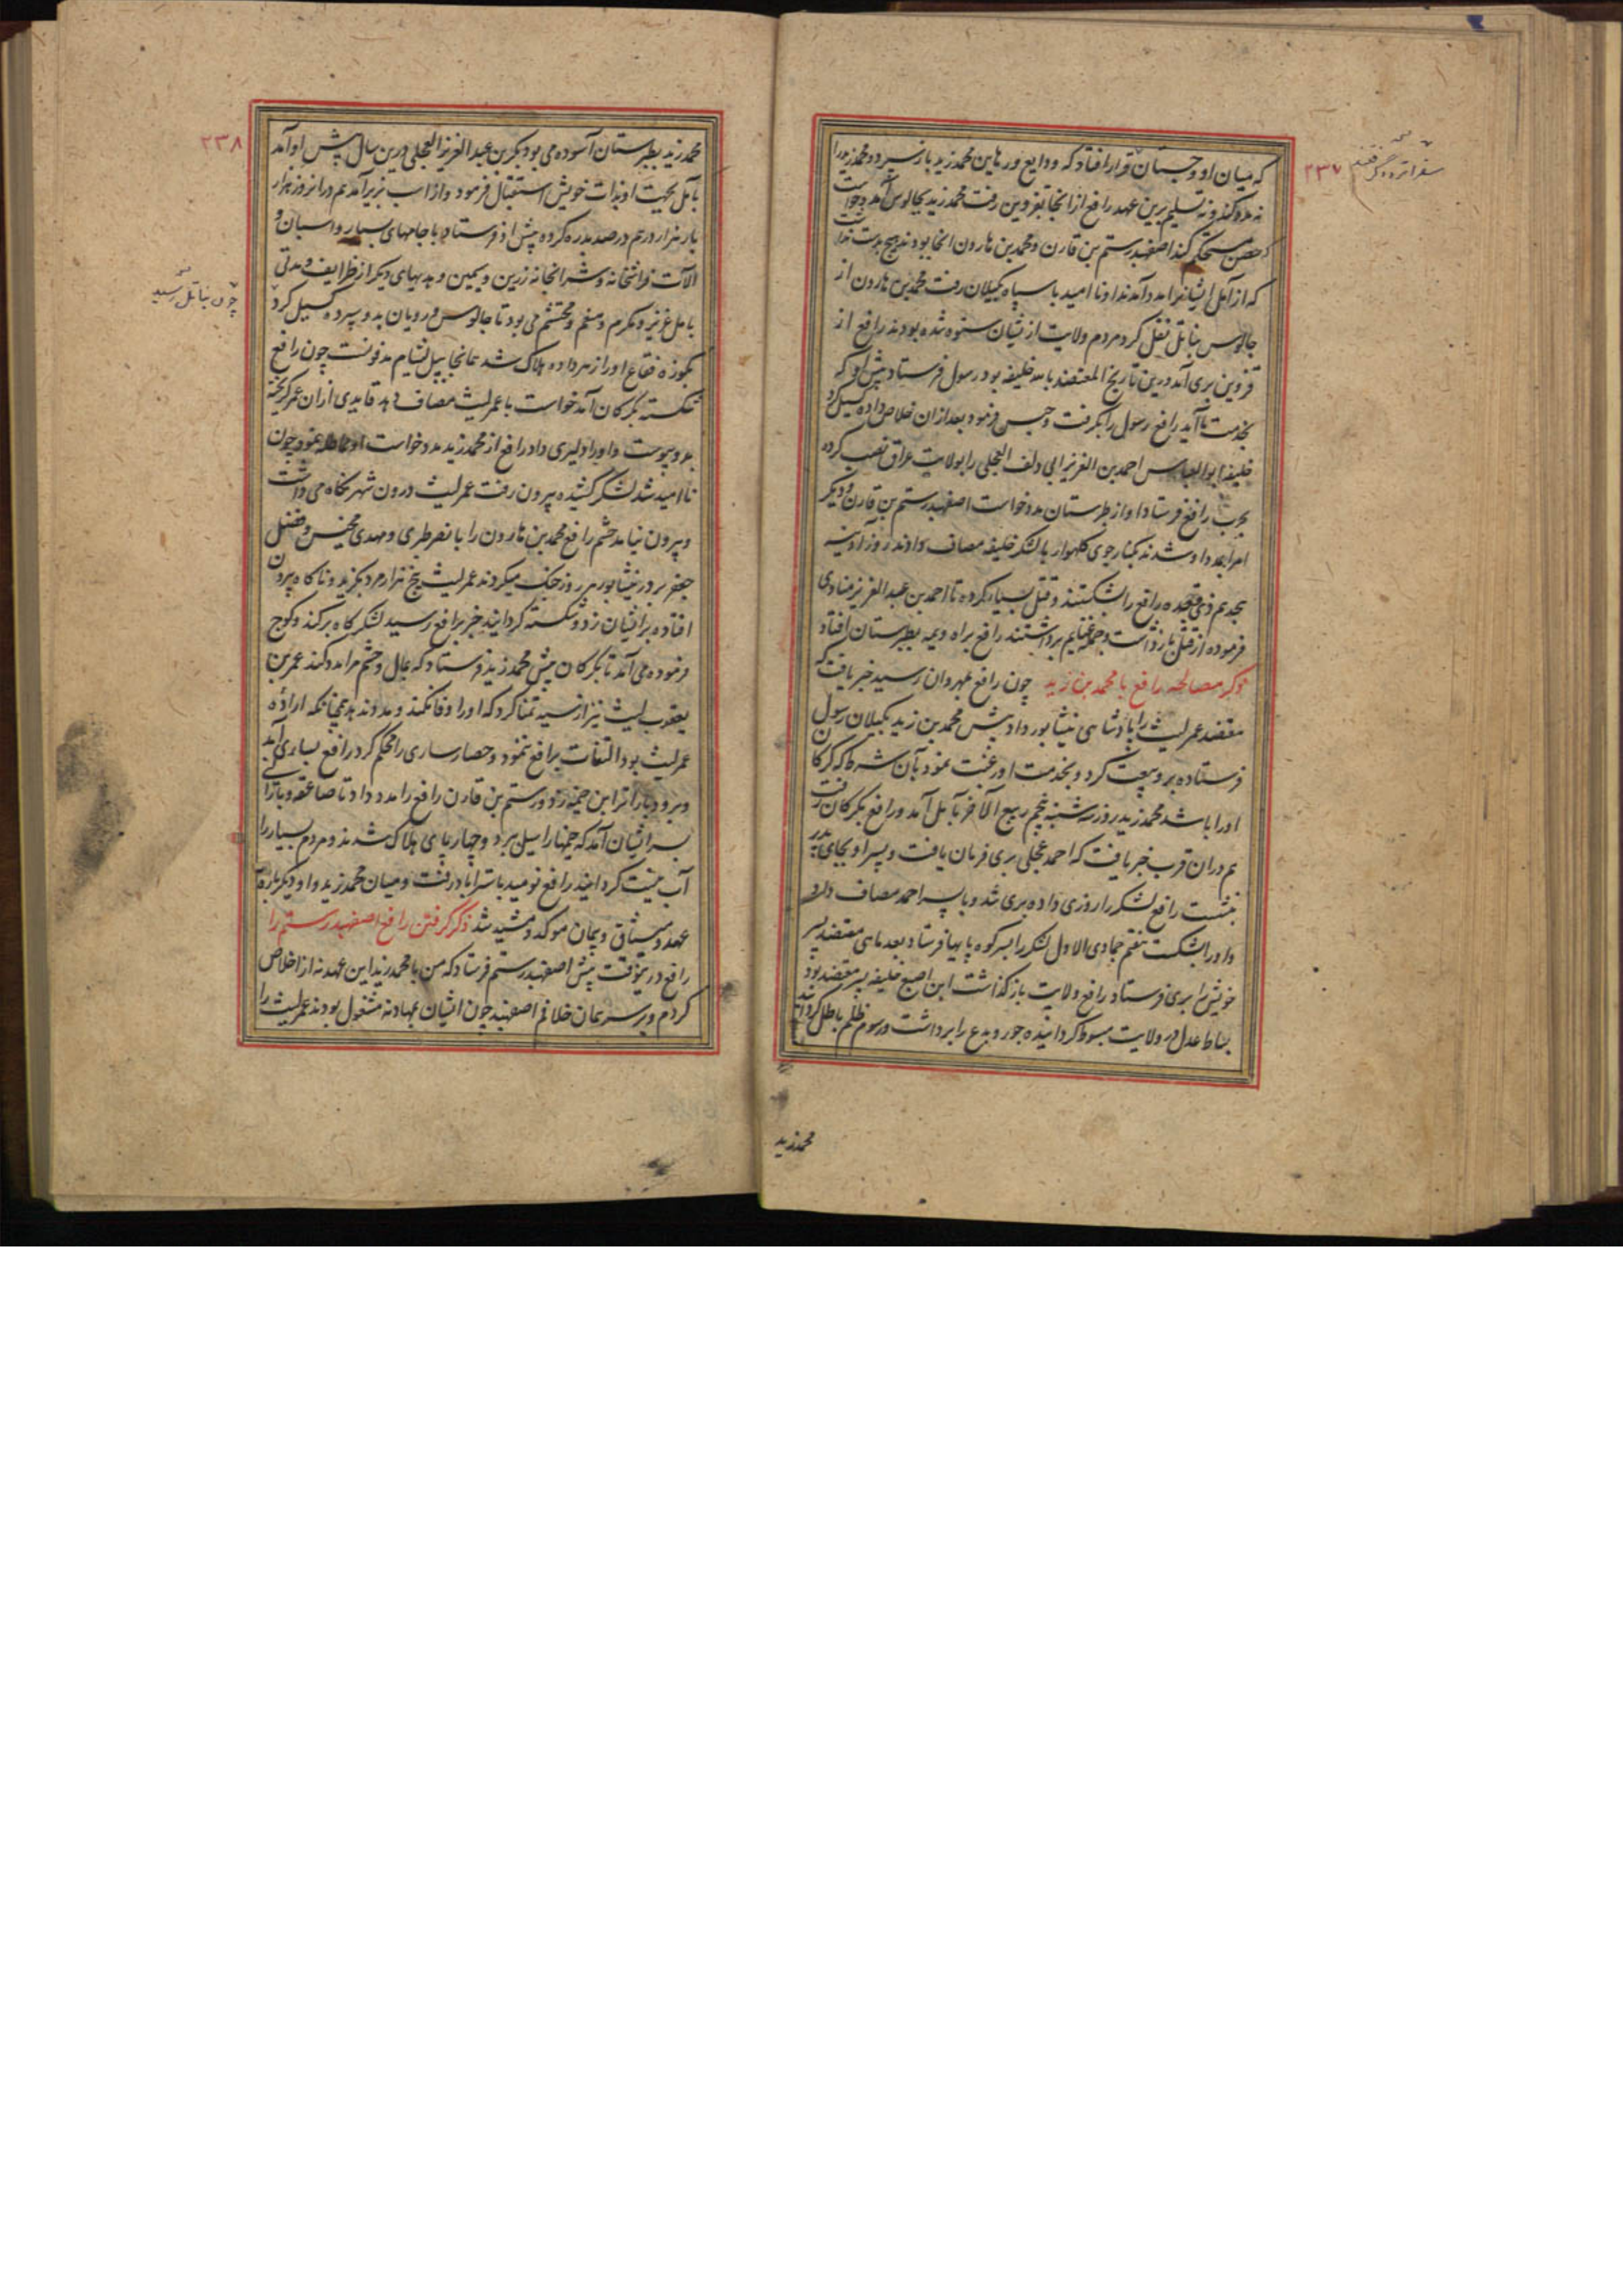 که میان او و جستان قرار افتاد که ودایع و رهاین محمد زید باز سپرد و محمد زید را
نه مدد کند و نه تسلیم برین عهد رافع از انجا بقزوین رفت محمد زید بچالوس آمد و خواست
حصن مستحکم کند اصفهبد رستم بن قارن و محمد بن هارون انجا بودند هیچ بدست نداشت
که از آمل ایشانرا مدد آمد ندا و نا امید با سپاه بگیلان رفت محمد بن هارون از
چالوس بناتل نقل کرد مردم ولایت از یشان ستوه شده بودند رافع از
قزوین بری آمد درین تاریخ المعتضد بالله خلیفه بود رسول فرستاد پیش او که
بخدمت ما آید رافع رسول را بگرفت و حبس فرمود بعد ازان خلاص داده گسیل کرد
خلیفه ابو العباس احمد بن العزیز ابی دلف العجلی را بولایت عراق نصب کرده
بحرب رافع فرستاد او از طبرستان مدد خواست اصفهبد رستم بن قارن و دیگر
امرا بمدد او شدند بکنار جوی کلهوار با لشکر خلیفه مصاف دادند روز آدینه
هجدهم ذی قعده رافع را شکستند و قتل بسیار کرده تا احمد بن عبد العزیز منادی
فرموده از قتل باز داشت و جمله غنایم برداشتند رافع براه ویمه بطبرستان افتاد
ذکر مصالحه رافع با محمد بن زید چون رافع بمهروان رسید خبر یافت که
معتضد عمر لیث را پادشاهی نیشابور داد پیش محمد بن زید بگیلان رسول
فرستاده برو بیعت کرد و بخدمت او رغبت نمود بآن شرط که گرگان
او را باشد محمد زید روز سه شنبه پنجم ربیع الآخر بآمل آمد و رافع بگرگان رفت
هم دران قرب خبر یافت که احمد عجلی بری فرمان یافت و پسر او بجای پدر
بنشست رافع لشکر را روزی داده بری شد و با پسر احمد مصاف داد
و او را بشکست هفتم جمادی الاول لشکر را بسر کوه پایها فرستاد بعد ماهی معتضد پسر
خویش را بری فرستاد رافع ولایت باز گذاشت ابن اصبغ خلیفه پسر معتضد بود
بساط عدل در ولایت مبسوط گردانیده جور و بدع را برداشت و رسوم ظلم باطل گردانید
محمد زید
۲۳۷
محمد زید بطبرستان آسوده می بود بکر بن عبد العزیز العجلی درین سال پیش او آمد
بآمل بحیت او بذات خویش استقبال فرمود و از اسب بزیر آمد هم در انروز هزار
بار هزار درهم در صد بدره کرده پیش او فرستاد با جامهای بسیار و اسبان و
آلات فراشخانه و شرابخانه زرین و سیمین و هدیهای دیگر از ظرایف و مدتی
بآمل عزیز و مکرم و منعم و محتشم می بود تا چالوس و رویان بدو سپرده گسیل کرد
بکوزه فقاع او را زهر داده هلاک شد همانجا بپل لشام مدفونست چون رافع
شکسته بگرگان آمد خواست با عمر لیث مصاف دهد قایدی ازان عمر گریخته
بدو پیوست و او را دلیری داد رافع از محمد زید مدد خواست او نمود چون
نا امید شد لشکر کشیده بیرون رفت عمر لیث درون شهر نگاه می داشت
و بیرون نیامد حشم رافع محمد بن هارون را با نصر طبری و مهدی محسن و فضل
جعفر بر در نیشابور هر روز جنگ میکردند عمر لیث پنج هزار مرد بگزید و ناگاه بیرون
افتاده بر ایشان زد و شکسته گردانید خبر برافع رسید لشکر گاه بر کند و کوچ
فرموده می آمد تا بگرگان پیش محمد زید فرستاد که بمال و حشم مرا مدد کند عمر بن
یعقوب لیث نیز از سید تمنا کرد که او را وفا نکند و مدد ندهد چنانکه اراده
عمر لیث بود التفات برافع ننمود و حصار ساری را محکم کرد رافع بساری آمد
و برود بار اترابن خیمه زد و رستم بن قارن رافع را مدد داد تا صاعقه و بارانی
بسر ایشان آمد که خیمها را سیل برد و چهار پای هلاک شدند و مردم بسیار را
آب نیست گردانید رافع نومید باستراباد رفت و میان محمد زید و او دیگر باره
عهد و میثاق و پیمان موکد و مشید شد ذکر گرفتن رافع اصفهبد رستم را
رافع در ینوقت پیش اصفهبد رستم فرستاد که من با محمد زید این عهد نه از اخلاص
کردم و بر سر همان خلافم اصفهبد چون ایشان بمهادنه مشغول بودند عمر لیث را
۲۳۸
چون بناتل رسید